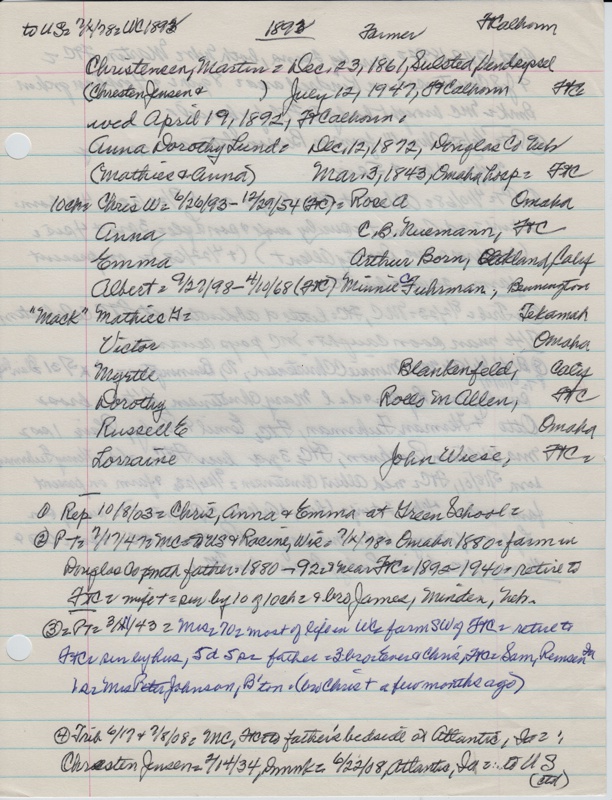 to US = 7/4/78 = WC 1893 1893 Farmer Ft Calhoun
Christensen, Martin = Dec. 23, 1861, Sulsted Vendsyssel
(Chresten Jensen & ) July 12, 1947, Ft Calhoun FtC
wed April 19, 1892, Ft Calhoun.
Anna Dorothy Lund = Dec, 12, 1872, Douglas Co Neb
(Mathies & Anna) Mar. 3, 1943, Omaha hosp = FtC
10 ch = Chris W = 6/26/93 - 12/29/54 (FtC) = Rose A Omaha
Anna C.B. Nuemann, FtC
Emma Arthur Born, Oakland, Calif
Albert = 9/27/98 - 4/10/68 (FtC) Minnie C Fuhrman, Bennington
"Mack" Mathies H = Tekamah
Victor Omaha
Myrtle Blankenfeld, Calif
Dorothy Rolls M Allen, FtC
Russell E Omaha
Lorraine John Wiese, FtC =
① Rep 10/8/03 = Chris, Anna & Emma at Green School =
② P-T = 7/17/47 = MC = US & Racine, Wis = 7/4/78 = Omaha 1880 = farm in
Douglas Co with father = 1880 - 92 = near FtC = 1892 - 1940 = retire to
FtC = wife + = sur by 10 of 10 ch = & bro James, Minden, Neb.
③ = PT = 3/ /43 = Mrs = 70 = most of life in WC = farm SW of FtC = retire to
FtC = sur by hus, 5 d 5 s = father = 3 bro = & Chris, FtC = Sam, Remsen Ia
1 s = Mrs Peter Johnson, B'ton = (bro Christ + a few months ago)
④ Trib 6/17 & 7/8/08 = MC, FtC to father's bedside at Atlantic, Ia = ;
Chresten Jensen = 2/14/34, Dnmk = 6/22/08, Atlantic, Ia = : to US
(ctd)